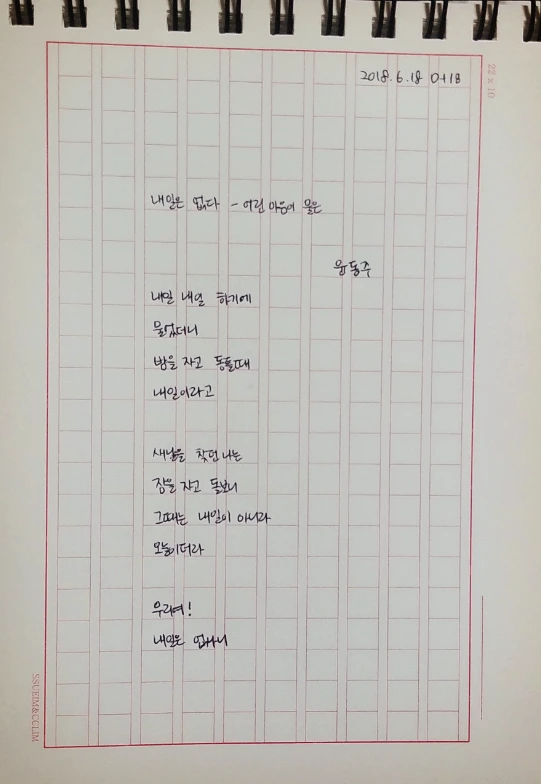 2018. 6. 18 0118
22 x 10
내일은 없다 - 어린 마음이 물은
윤동주
내일 내일 하기에
물었더니
밤을 자고 동틀때
내일이라고
새날을 찾던 나는
잠을 자고 돌보니
그때는 내일이 아니라
오늘이더라
무리여!
내일은 없나니
SSUEIM&CCLIM